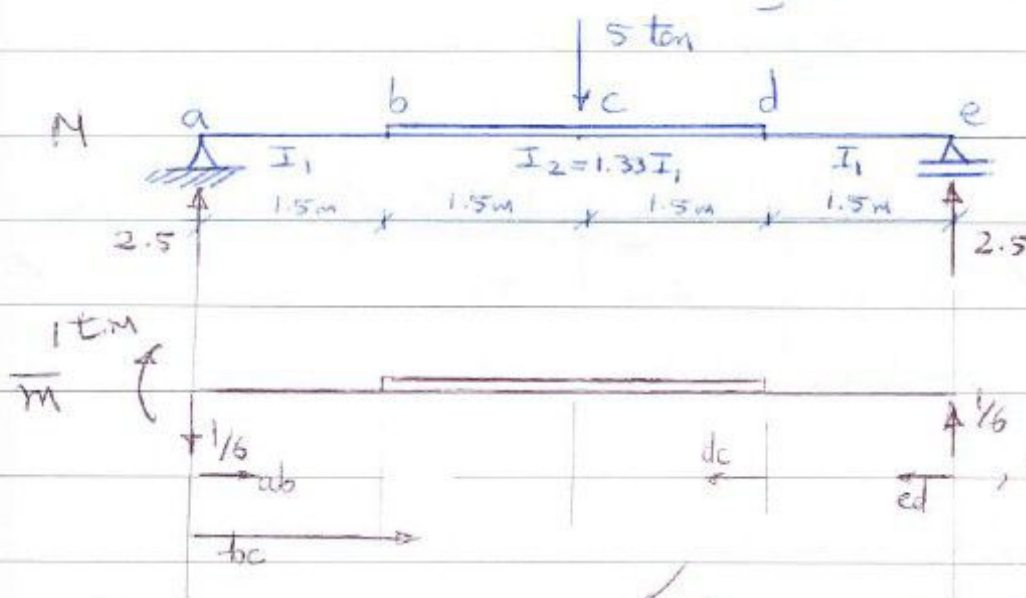 5 ton
M a b c d e
I₁ I₂=1.33I₁ I₁
1.5m 1.5m 1.5m 1.5m
2.5 2.5
1 t.m
m̅
1/6 1/6
ab dc ed
bc